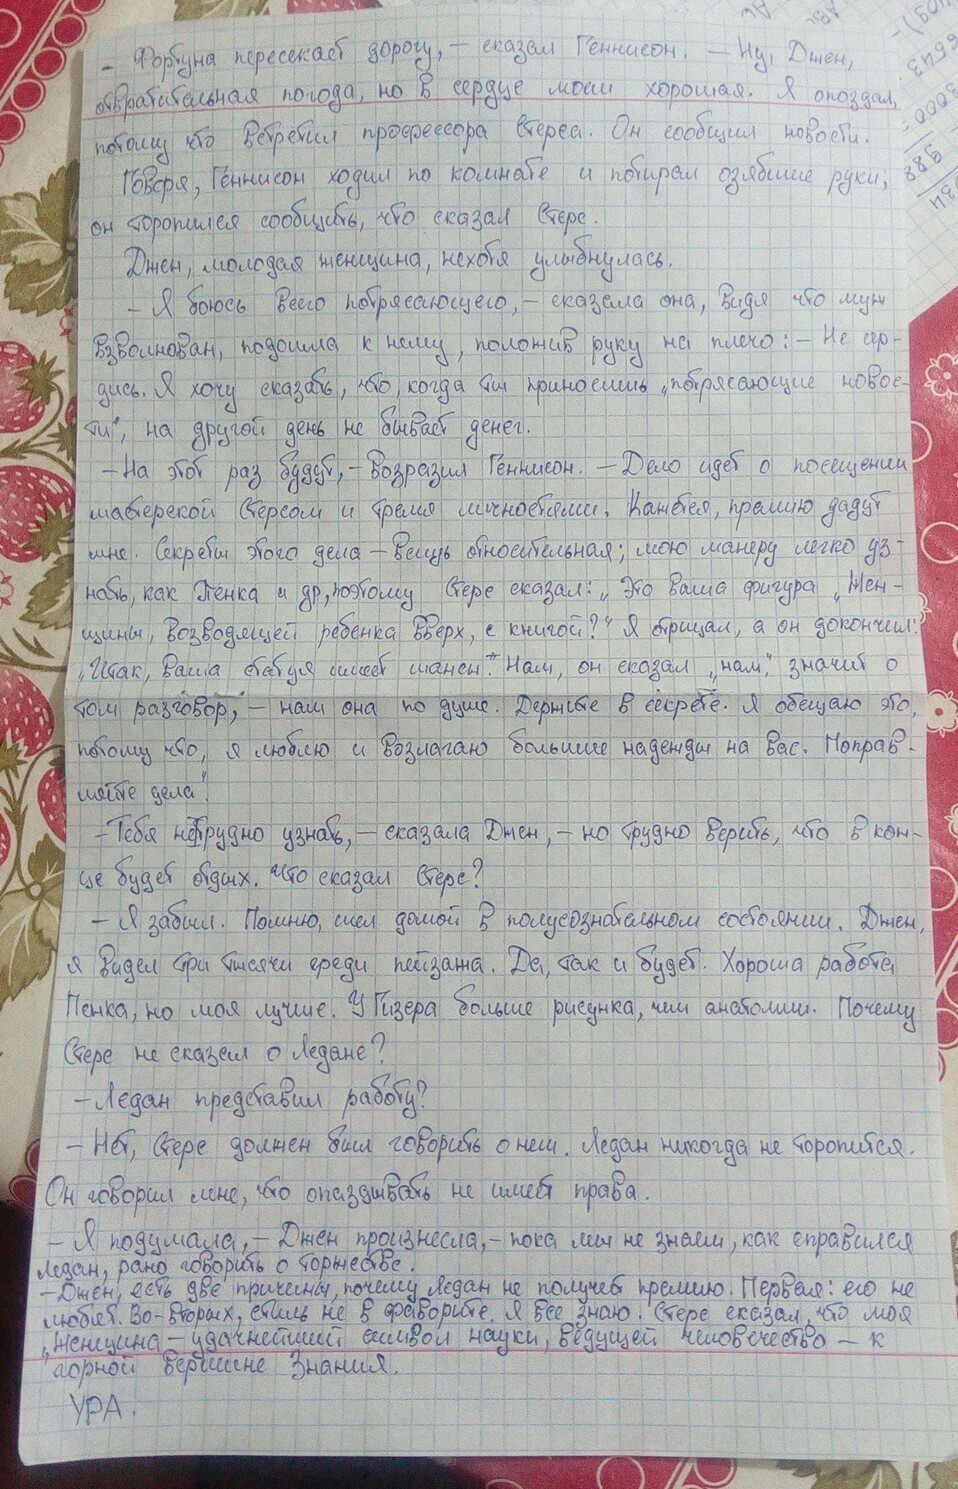 - Фортуна пересекает дорогу, - сказал Геннисон. - Ну, Джен,
отвратительная погода, но в сердце моем хорошая. Я опоздал,
потому что встретил профессора Стерса. Он сообщил новости.
Говоря, Геннисон ходил по комнате и потирал озябшие руки;
он торопился сообщить, что сказал Стерс.
Джен, молодая женщина, нехотя улыбнулась.
- Я боюсь всего потрясающего, - сказала она, видя что муж
взволнован, подошла к нему, положив руку на плечо: - Не сер-
дись. Я хочу сказать, что, когда ты приносишь „потрясающие новос-
ти", на другой день не бывает денег.
- На этот раз будут, - возразил Геннисон. - Дело идет о посещении
мастерской Стерсом и тремя личностями. Кажется, премию дадут
мне. Секреты этого дела - вещь относительная; мою манеру легко уз-
нать, как Пенка и др, поэтому Стерс сказал: „Это ваша фигура „Жен-
щины, возводящей ребенка вверх, с книгой?" Я отрицал, а он докончил:
„Итак, ваша статуя имеет шансы." Нам, он сказал „нам", значит о
том разговор, - нам она по душе. Держите в секрете. Я обещаю это,
потому что, я люблю и возлагаю большие надежды на вас. Поправ-
ляйте дела".
- Тебя нетрудно узнать, - сказала Джен, - но трудно верить, что в кон-
це будет отдых. Что сказал Стерс?
- Я забыл. Помню, шел домой в полусознательном состоянии. Джен,
я видел три тысячи среди пейзажа. Да, так и будет. Хороша работа
Пенка, но моя лучше. У Гизера больше рисунка, чем анатомии. Почему
Стерс не сказал о Ледане?
- Ледан представил работу?
- Нет, Стерс должен был говорить о нем. Ледан никогда не торопится.
Он говорил мне, что опаздывать не имеет права.
- Я подумала, - Джен произнесла, - пока мы не знаем, как справился
Ледан, рано говорить о торжестве.
- Джен, есть две причины, почему Ледан не получит премию. Первая: его не
любят. Во-вторых, стиль не в фаворите. Я все знаю. Стерс сказал, что моя
„Женщина - удачнейший символ науки, ведущей человечество - к
горной вершине Знания.
УРА.